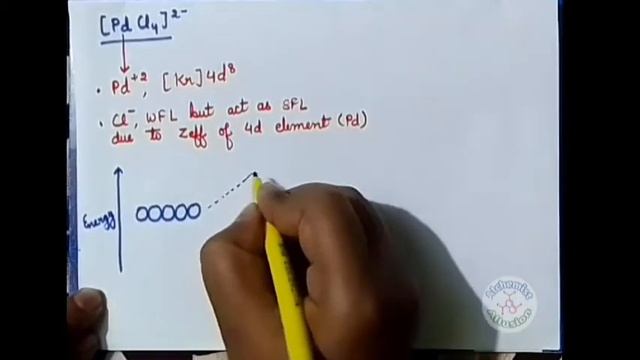 [Pd Cl₄]²⁻
• Pd⁺², [Kr] 4d⁸
• Cl⁻, WFL but act as SFL
due to Zeff of 4d element (Pd)
Energy
Alchemist
Affusion